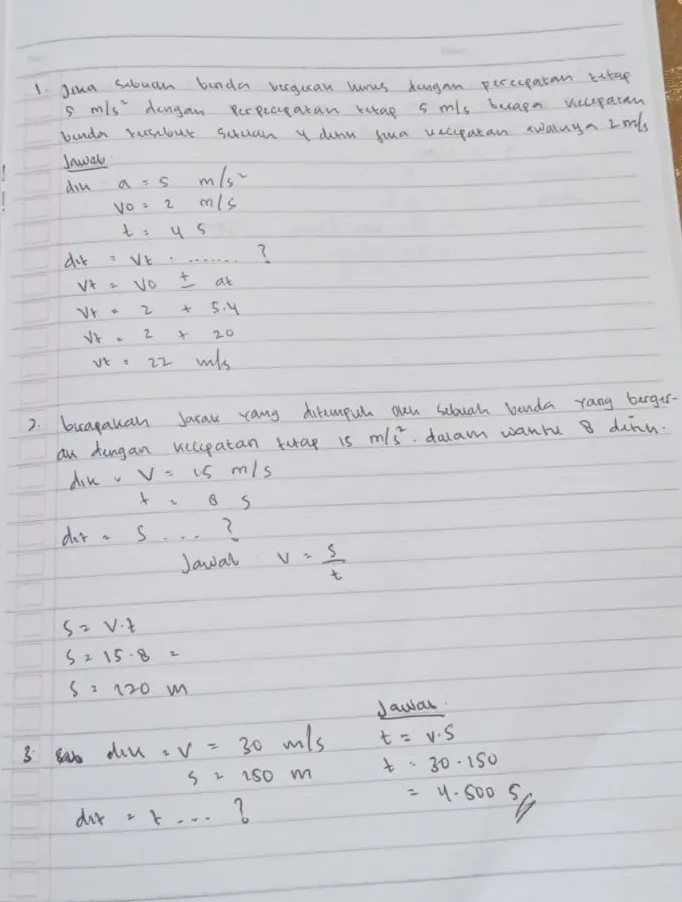 1. Jika sebuah benda bergerak lurus dengan percepatan tetap
5 m/s² dengan perpecepatan tetap 5 m/s berapa kecepatan
benda tersebut setelah 4 detik jika kecepatan awalnya 2 m/s
Jawab:
dik a = 5 m/s²
V0 = 2 m/s
t = 4 s
dit = Vt ........ ?
Vt = V0 ± at
Vt = 2 + 5.4
Vt = 2 + 20
Vt = 22 m/s
2. berapakah jarak yang ditempuh oleh sebuah benda yang berger-
ak dengan kecepatan tetap 15 m/s². dalam waktu 8 detik.
dik = V = 15 m/s
t = 8 s
dit = S ... ?
Jawab V = S/t
S = V.t
S = 15.8 =
S = 120 m
3. dik = V = 30 m/s
S = 150 m
dit = t ... ?
Jawab:
t = V.S
t = 30.150
= 4.500 S